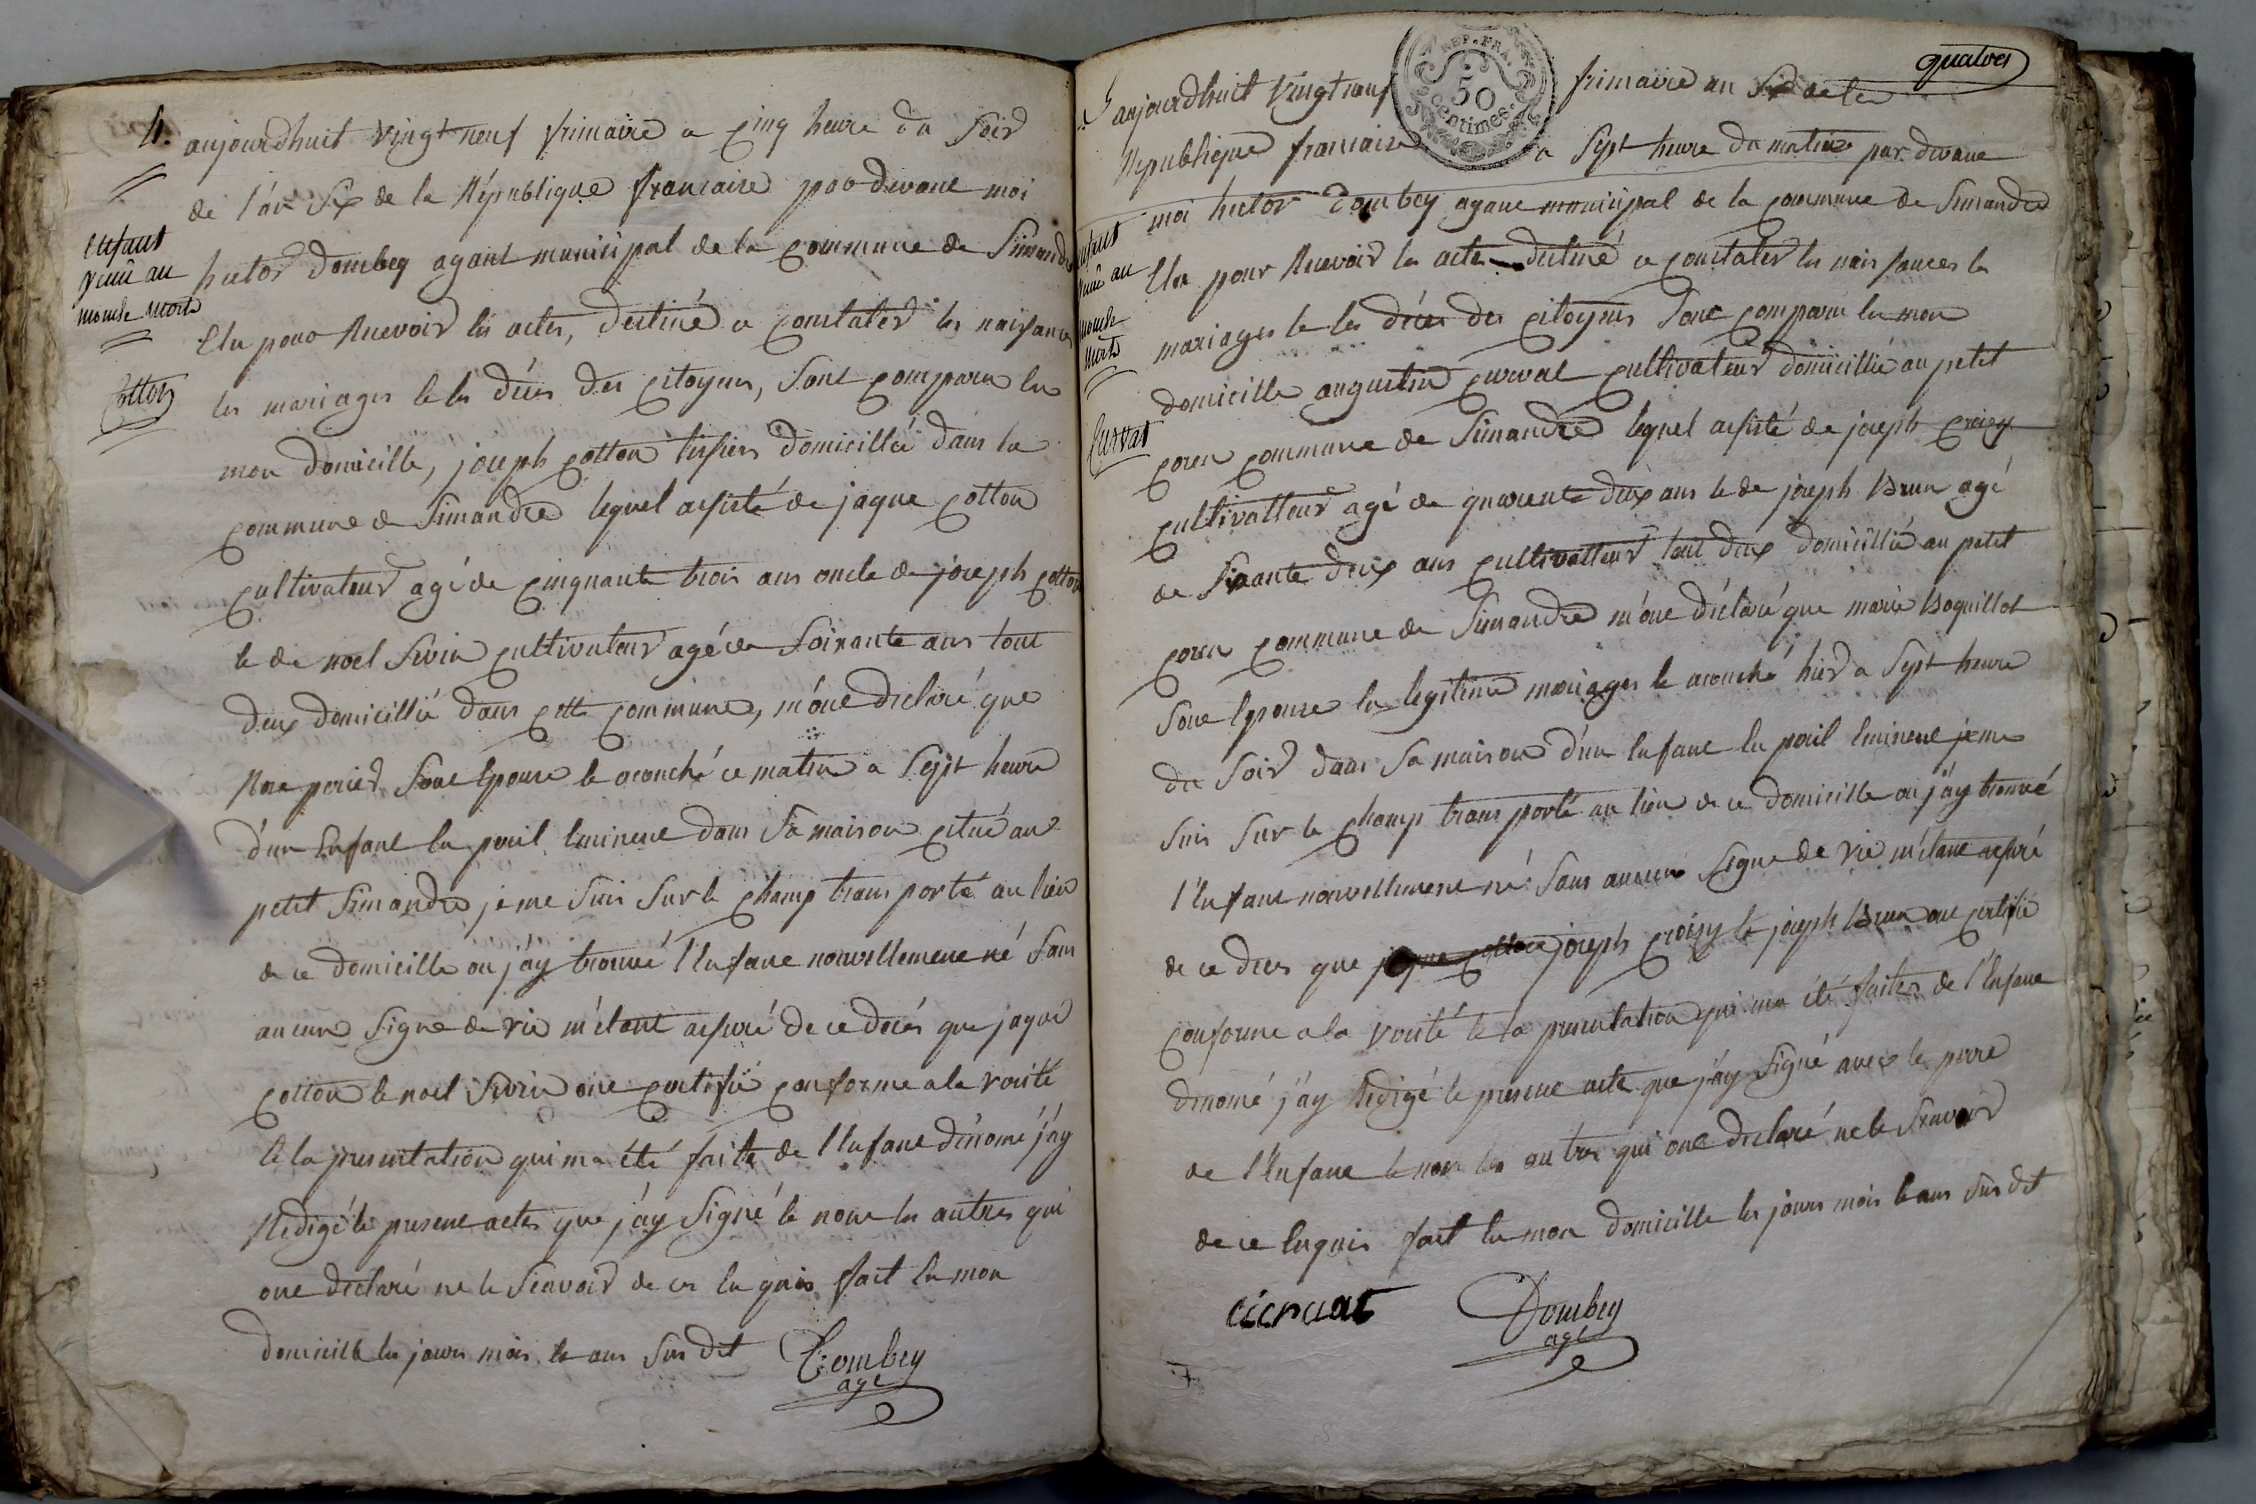 4.
enfant
venu au
monde morts
Cotton
aujourdhuit vingt neuf frimaire a cinq heure du soir
de l'an six de la République francaise par devant moi
hector Dombey agant municipal de la commune de Simandre
elu pour Recevoir les actes, destiné a constater les naissances
les mariages et les déces des citoyens, sont comparu en
mon domicille, joseph cotton tissier domicillié dans la
commune de Simandre lequel assisté de jaque cotton
cultivateur agé de cinquante trois ans oncle de joseph cotton
et de noel Sivin cultivateur agé de soixante ans tout
deux domicillié dans cette commune, m'ont declaré que
perier sont epouse et aconché ce matin a sept heure
d'un enfant en pouil eminent dans sa maison citué au
petit Simandre je me suis sur le champ transporté au lieu
de ce domicille ou j'ay trouvé l'enfant nouvellement né sans
aucun signe de vie m'étant assuré de ce décés que jaque
cotton et noel Sivin ont certifié conforme a la verité
et la presentation qui ma été faite de l'enfant dénomé j'ay
Redigé le present actes que j'ay signé et nom les autres qui
ont declaré ne le scavoir de ce enquis fait en mon
domicille les jours mois et ans sus dit
Dombey
agt
quatres
REP. FRA.
50
centimes.
5
enfant
venu au
monde
morts
Curvat
aujourdhuit vingt neuf frimaire an six de la
Republique francaise a sept heure du matin par devant
moi hector Dombey agant municipal de la commune de Simandre
elu pour Recevoir les actes destiné a constater les naissances les
mariages et les déces des citoyens sont comparu en mon
domicille augustin curvat cultivateur domicillié au petit
coren commune de Simandre lequel assisté de joseph croizy
cultivatteur agé de quarente deux ans et de joseph Brun agé
de sixante deux ans cultivatteur tout deux domicillié au petit
coren commune de Simandre m'ont déclaré que marie Boquillot
sont epouse en legitime mariages et aconché hier a sept heure
du soir dans sa maison d'un enfant en pouil eminent je me
suis sur le champ transporté au lieu de ce domicille ou j'ay trouvé
l'enfant nouvellement né sans aucun signe de vie m'étant assuré
de ce deces que jaque cotton joseph croizy et joseph Brun ont certifié
conforme a la verité et la presentation qui ma été faites de l'enfant
dénomé j'ay Redigé le present acte que j'ay signé avec le pere
de l'enfant et nom les autres qui ont declaré ne le scavoir
de ce enquis fait en mon domicille les jours mois et ans sus dit
curvat
Dombey
agt